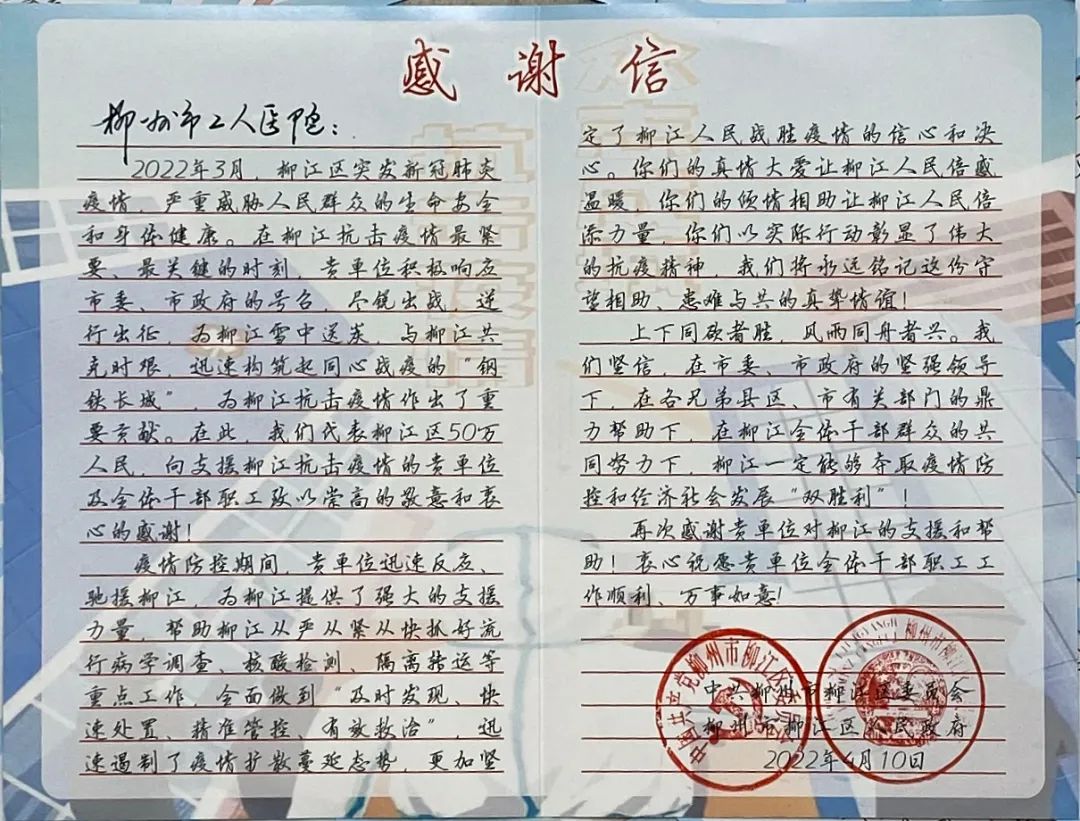 感谢信
柳州市工人医院：
2022年3月，柳江区突发新冠肺炎
疫情，严重威胁人民群众的生命安全
和身体健康。在柳江抗击疫情最紧
要、最关键的时刻，贵单位积极响应
市委、市政府的号召，尽锐出战，逆
行出征，为柳江雪中送炭，与柳江共
克时艰，迅速构筑起同心战疫的“钢
铁长城”，为柳江抗击疫情作出了重
要贡献。在此，我们代表柳江区50万
人民，向支援柳江抗击疫情的贵单位
及全体干部职工致以崇高的敬意和衷
心的感谢！
疫情防控期间，贵单位迅速反应、
驰援柳江，为柳江提供了强大的支援
力量，帮助柳江从严从紧从快抓好流
行病学调查、核酸检测、隔离转运等
重点工作，全面做到“及时发现、快
速处置、精准管控、有效救治”，迅
速遏制了疫情扩散蔓延态势，更加坚
定了柳江人民战胜疫情的信心和决
心。你们的真情大爱让柳江人民倍感
温暖，你们的倾情相助让柳江人民倍
添力量，你们以实际行动彰显了伟大
的抗疫精神，我们将永远铭记这份守
望相助、患难与共的真挚情谊！
上下同欲者胜，风雨同舟者兴。我
们坚信，在市委、市政府的坚强领导
下，在各兄弟县区、市有关部门的鼎
力帮助下，在柳江全体干部群众的共
同努力下，柳江一定能够夺取疫情防
控和经济社会发展“双胜利”！
再次感谢贵单位对柳江的支援和帮
助！衷心祝愿贵单位全体干部职工工
作顺利、万事如意！
中共柳州市柳江区委员会
柳州市柳江区人民政府
2022年4月10日